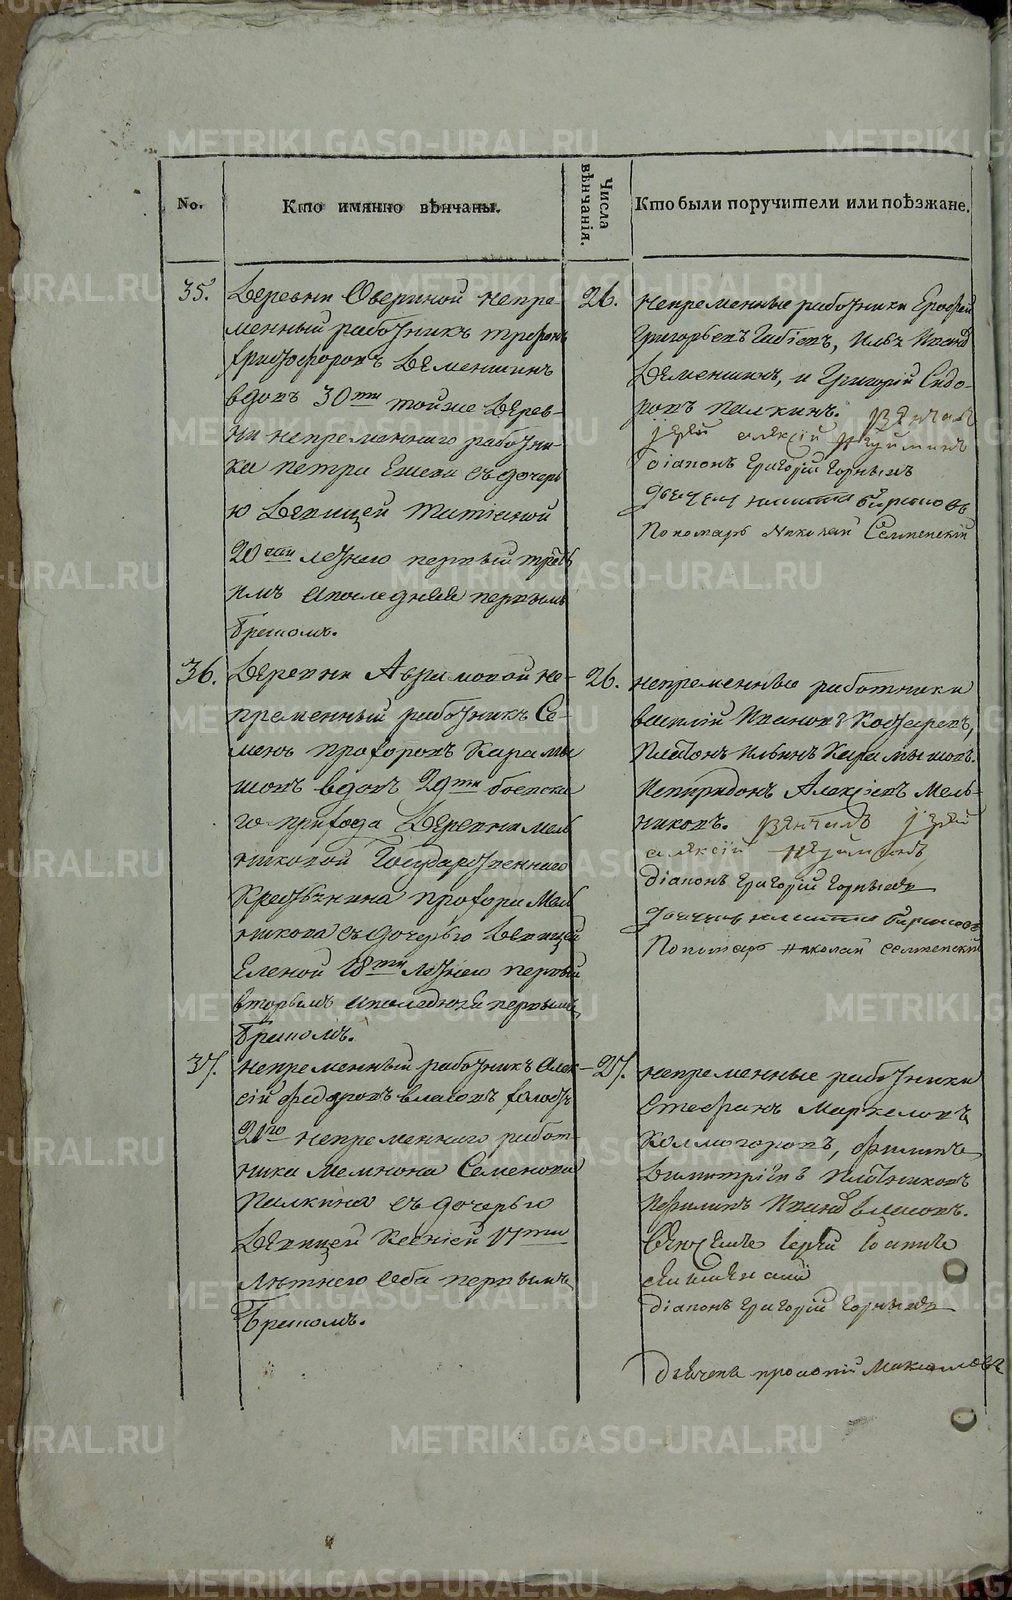 METRIKI.GASO-URAL.RU
No.
Кто имянно вѣнчаны.
Числа вѣнчанія.
Кто были поручители или поѣзжане.
35.
Деревни Овериной непре-
менный работникъ
вдовъ 30ти тойже дерев-
ни непременнаго работни-
ка Петра съ дочерь
ю девицей Татианой
20ти летнею первый треть
имъ а последняя первымъ
бракомъ.
26.
непременные работники Ерофей
Григорьевъ Иванъ
и Григорій Сидо-
ровъ Палкинъ. вѣнчалъ
іерей алексій
Діаконъ Григорій Горныхъ
Пономарь Николай Селменскій
36.
Деревни Аврамовой не-
пременный работникъ Се-
менъ Прохоровъ Карамы
шовъ вдовъ 29ти боевска
го прихода Деревни мел
никовой Государственнаго
Крестьянина Прохора Мел
никова съ дочерью девицей
Еленой 18ти летнею первый
вторымъ а последняя первымъ
бракомъ.
26.
непременные работники
Василій Ивановъ Косаревъ,
Платонъ Ильинъ Карамышовъ
Алексіевъ Мель-
никовъ. вѣнчалъ іерей
алексій
Діаконъ Григорій Горныхъ
Пономарь Николай Селменскій
37.
непременный работникъ Алек
сій Федоровъ Власовъ холостъ
21го непременнаго работ-
ника Мемнона Семенова
Палкина съ дочерью
девицей Ксеніей 17ти
лѣтнею оба первымъ
бракомъ.
27.
непременные работники
Стефанъ Маркеловъ
Колмогоровъ, Филипъ
Димитріевъ Плотниковъ
Иванъ Власовъ.
іерей Іоаннъ
Діаконъ Григорій Горныхъ
Дьячекъ Прокопій Максимовъ